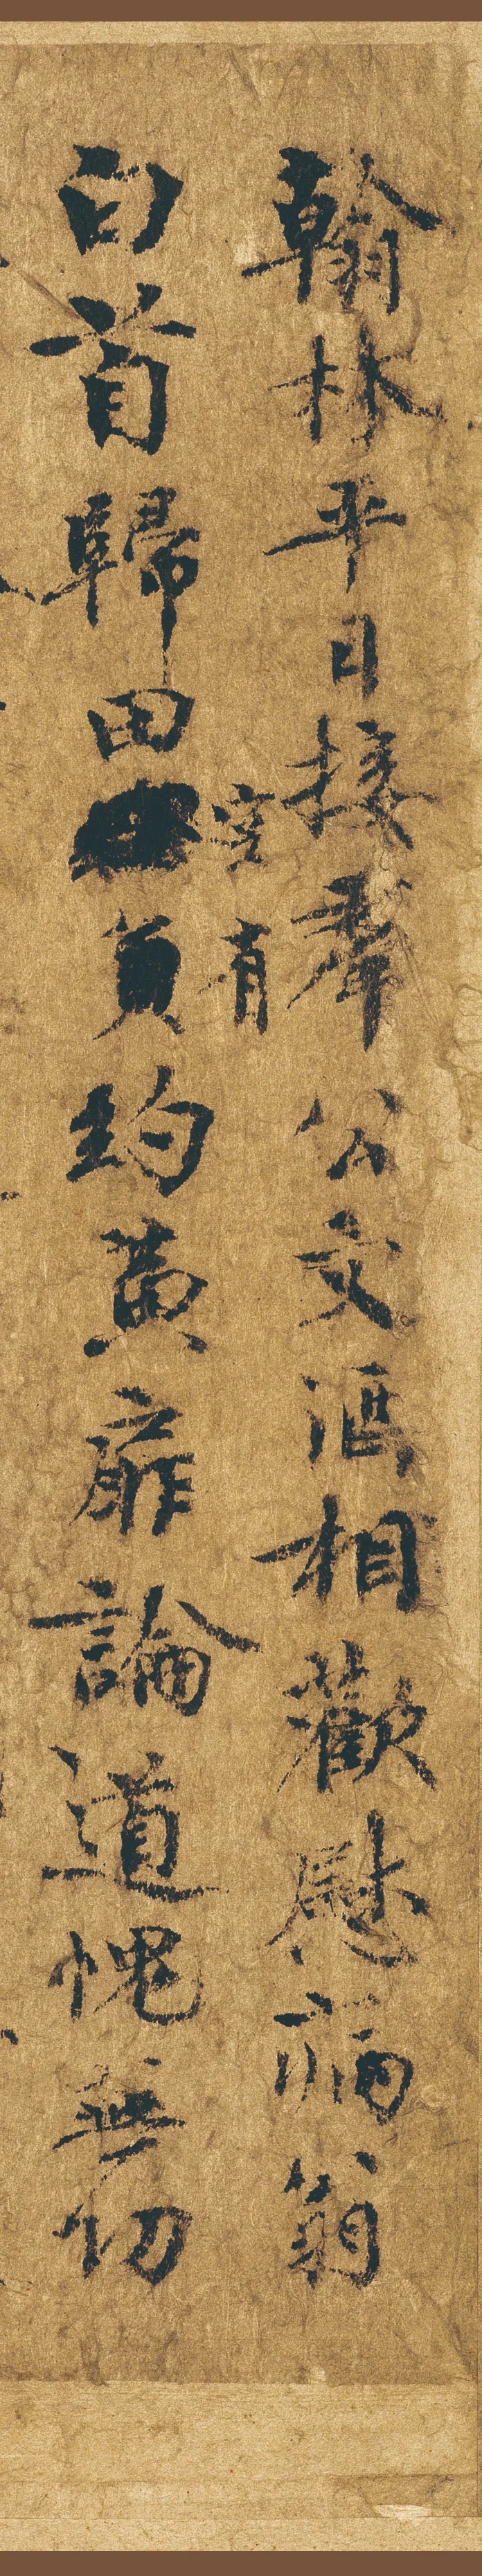 翰林平日接羣公文酒相歡慰病翁
空有
白首歸田負約黃扉論道愧無功